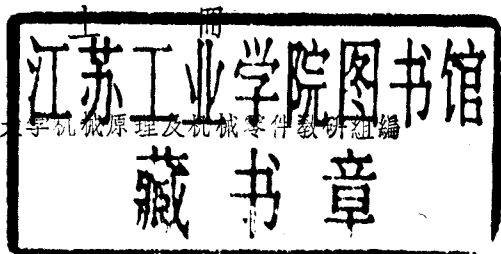 上 冊
江苏工业学院图书馆
大学机械原理及机械零件教研組編
藏书章